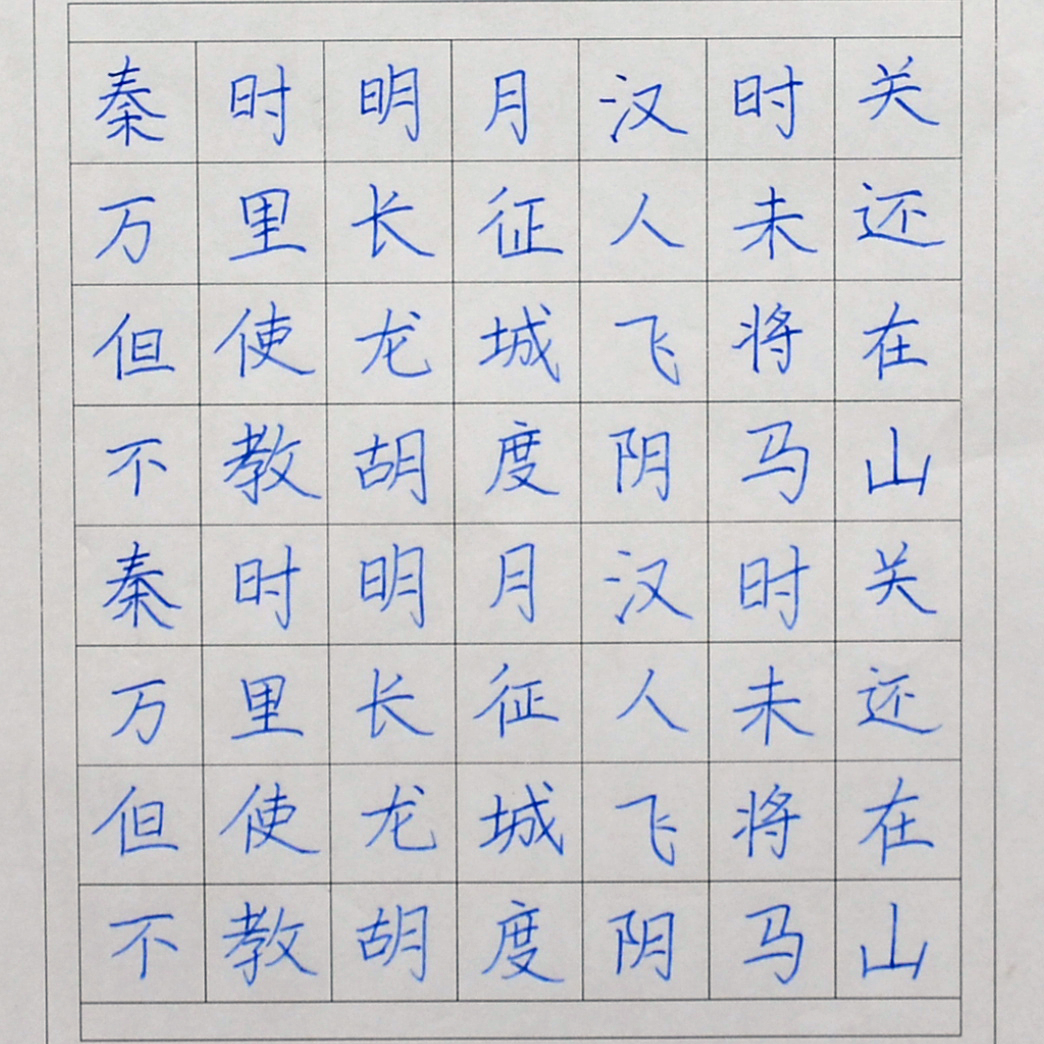 秦时明月汉时关
万里长征人未还
但使龙城飞将在
不教胡度阴马山
秦时明月汉时关
万里长征人未还
但使龙城飞将在
不教胡度阴马山